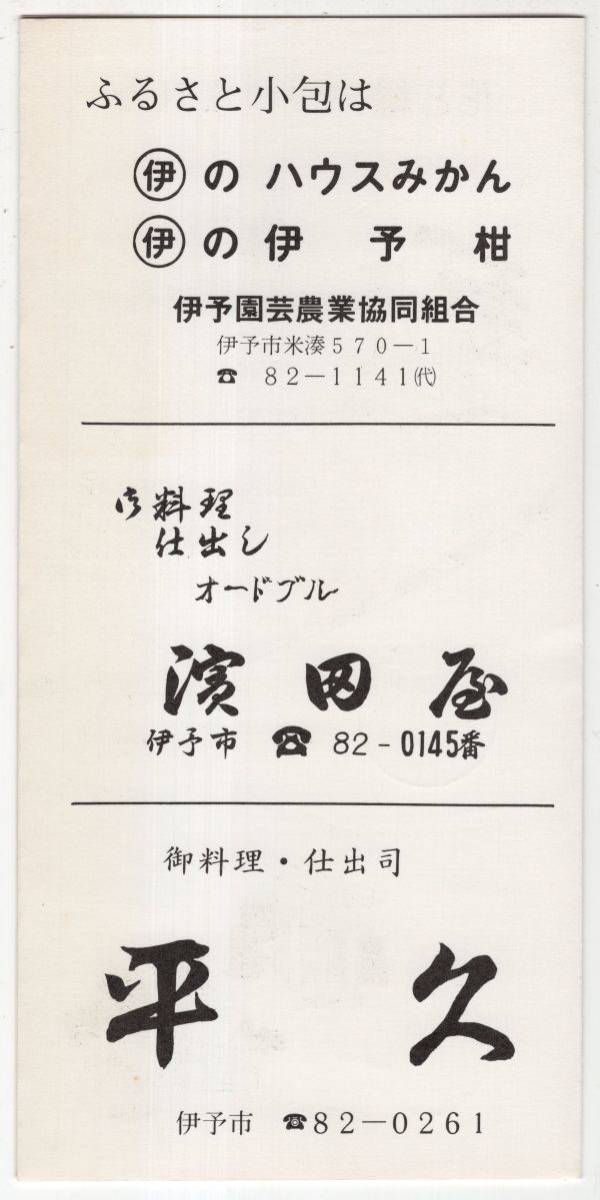 ふるさと小包は
㋑伊の ハウスみかん
伊の伊予柑
伊予園芸農業協同組合
伊予市米湊570－1
☎ 82－1141㈹
御料理
仕出し
オードブル
濱田屋
伊予市 ☎ 82-0145番
御料理・仕出司
平久
伊予市 ☎82－0261